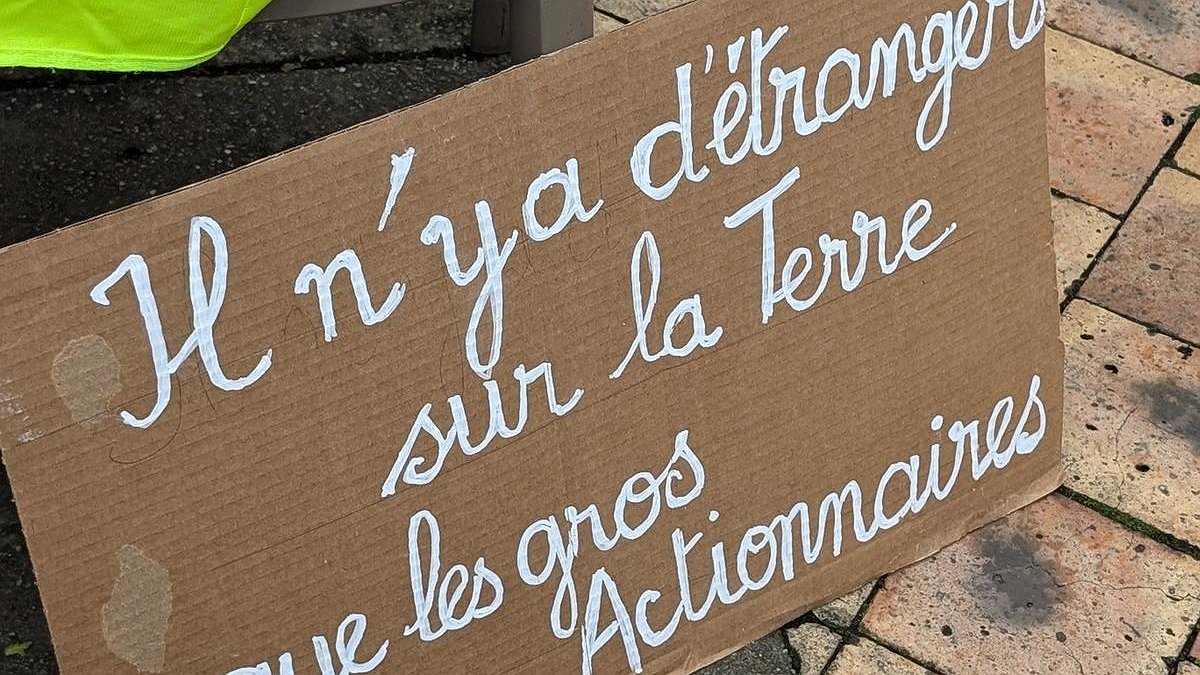 Il n'y a d'étrangers
sur la Terre
que les gros
Actionnaires